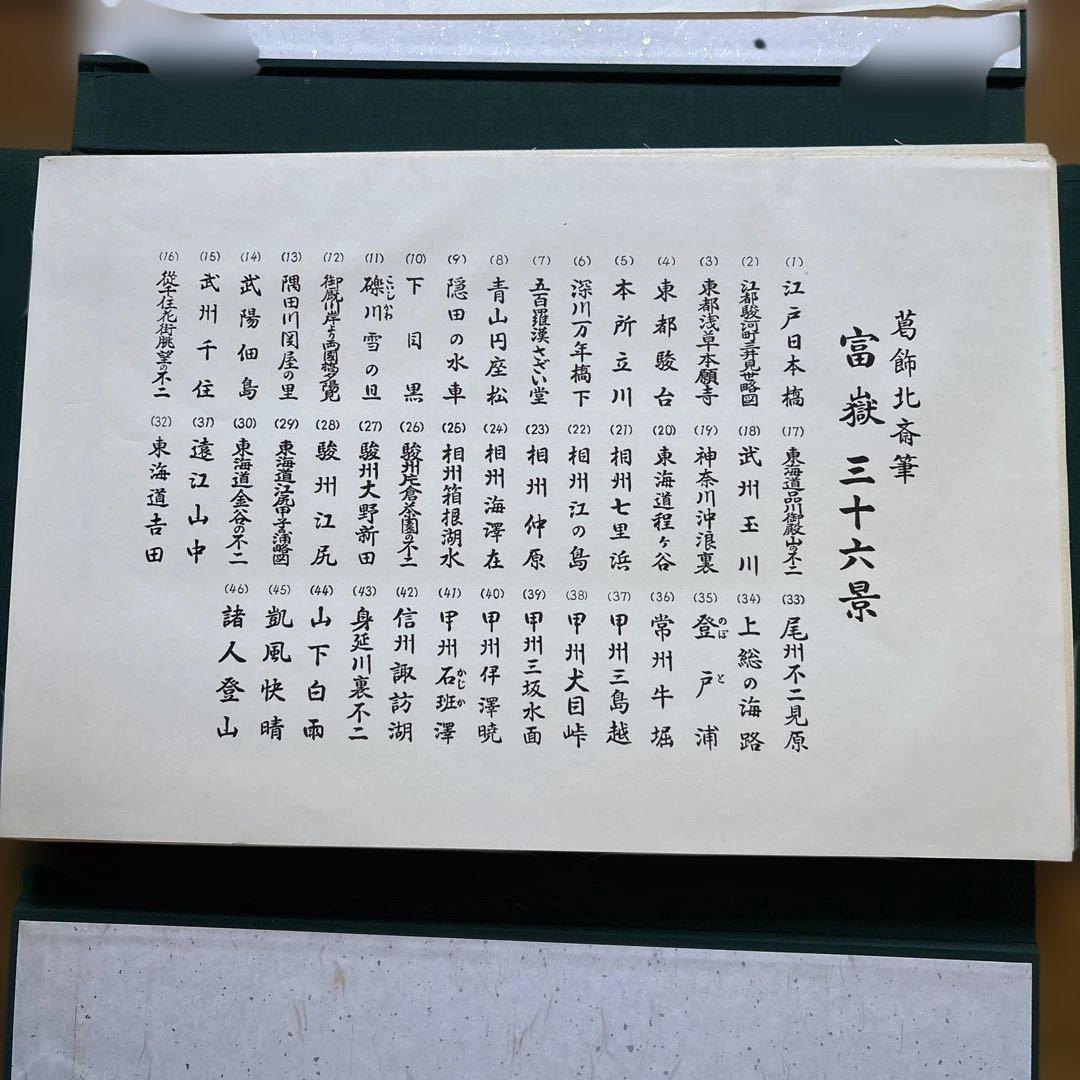 葛飾北斎筆
富嶽三十六景
(1) 江戸日本橋
(2) 江都駿河町三井見世略図
(3) 東都浅草本願寺
(4) 東都駿台
(5) 本所立川
(6) 深川万年橋下
(7) 五百羅漢さざい堂
(8) 青山円座松
(9) 隠田の水車
(10) 下目黒
(11) 礫川雪の旦
こいしかわ
(12) 御厩川岸より両國橋夕陽見
(13) 隅田川関屋の里
(14) 武陽佃島
(15) 武州千住
(16) 従千住花街眺望の不二
(17) 東海道品川御殿山の不二
(18) 武州玉川
(19) 神奈川沖浪裏
(20) 東海道程ヶ谷
(21) 相州七里浜
(22) 相州江の島
(23) 相州仲原
(24) 相州海澤在
(25) 相州箱根湖水
(26) 駿州片倉茶園の不二
(27) 駿州大野新田
(28) 駿州江尻
(29) 東海道江尻田子の浦略図
(30) 東海道金谷の不二
(31) 遠江山中
(32) 東海道吉田
(33) 尾州不二見原
(34) 上総の海路
(35) 登戸浦
のぼと
(36) 常州牛堀
(37) 甲州三島越
(38) 甲州犬目峠
(39) 甲州三坂水面
(40) 甲州伊澤暁
(41) 甲州石班澤
かじか
(42) 信州諏訪湖
(43) 身延川裏不二
(44) 山下白雨
(45) 凱風快晴
(46) 諸人登山